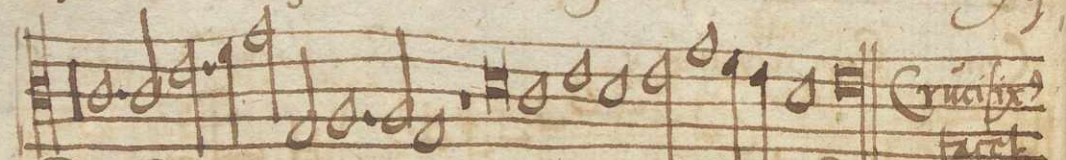 Crucifixus
tacet